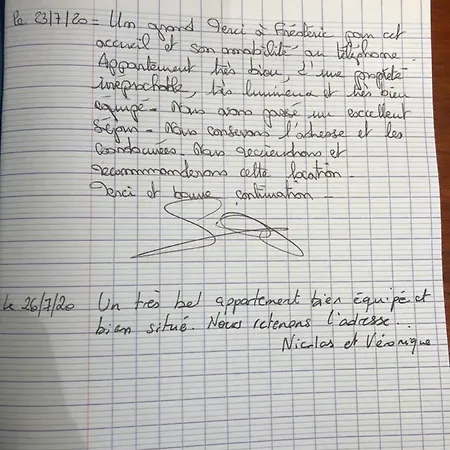 Le 23/7/20 = Un grand Merci à Frédéric pour cet
accueil et son amabilité au téléphone.
Appartement très bien, d'une propreté
irréprochable, très lumineux et très bien
équipé - Nous avons passé un excellent
Séjour - Nous conservons l'adresse et les
coordonnées. Nous reviendrons et
recommanderons cette location -
Merci et bonne continuation -
Le 26/7/20 Un très bel appartement bien équipé et
bien situé. Nous retenons l'adresse...
Nicolas et Véronique